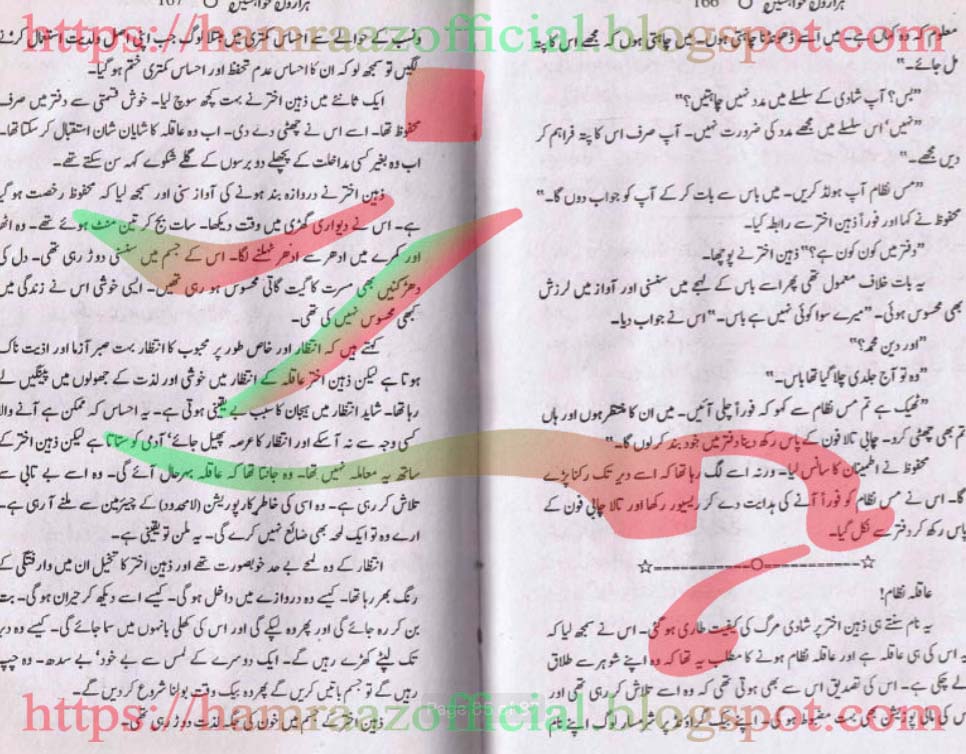 ہزاروں خواہشیں O 166
معلوم کہ وہ کہاں ہے۔ میں اسے ڈھونڈنا چاہتی ہوں۔ میں چاہتی ہوں کہ مجھے اس کا پتہ
مل جائے۔"
"بس؟ آپ شادی کے سلسلے میں مدد نہیں چاہتیں؟"
"نہیں' اس سلسلے میں مجھے مدد کی ضرورت نہیں۔ آپ صرف اس کا پتہ فراہم کر
دیں مجھے۔"
"مس نظام آپ ہولڈ کریں۔ میں باس سے بات کر کے آپ کو جواب دوں گا۔"
محفوظ نے کہا اور فوراً ذہین اختر سے رابطہ کیا۔
"دفتر میں کون کون ہے؟" ذہین اختر نے پوچھا۔
یہ بات خلاف معمول تھی پھر اسے باس کے لہجے میں سنسنی اور آواز میں لرزش
بھی محسوس ہوئی۔ "میرے سوا کوئی نہیں ہے باس۔" اس نے جواب دیا۔
"اور دین محمد؟"
"وہ تو آج جلدی چلا گیا تھا باس۔"
"ٹھیک ہے تم مس نظام سے کہو کہ فوراً چلی آئیں۔ میں ان کا منتظر ہوں اور ہاں
تم بھی چھٹی کرو۔ چابی تالا فون کے پاس رکھ دینا دفتر میں خود بند کر لوں گا۔"
محفوظ نے اطمینان کا سانس لیا۔ ورنہ اسے لگ رہا تھا کہ اسے دیر تک رکنا پڑے
گا۔ اس نے مس نظام کو فوراً آنے کی ہدایت دے کر ریسیور رکھا اور تالا چابی فون کے
پاس رکھ کر دفتر سے نکل گیا۔
☆------------O------------☆
عاقلہ نظام!
یہ نام سنتے ہی ذہین اختر پر شادی مرگ کی کیفیت طاری ہو گئی۔ اس نے سمجھ لیا کہ
یہ اس کی ہی عاقلہ ہے اور عاقلہ نظام ہونے کا مطلب یہ تھا کہ وہ اپنے شوہر سے طلاق
لے چکی ہے۔ اس کی تصدیق اس سے بھی ہوتی تھی کہ وہ اسے تلاش کر رہی تھی اور
اس کی مالی پوزیشن بھی بہت مضبوط ہو گی۔ اپنے بیک گراؤنڈ پر شرمسار لوگ اپنے نام
ہزاروں خواہشیں O 167
و نسب کے حوالے سے احساس کمتری میں مبتلا لوگ جب اپنی اصل ولدیت استعمال کرنے
لگیں تو سمجھ لو کہ ان کا احساس عدم تحفظ اور احساس کمتری ختم ہو گیا۔
ایک ثانئے میں ذہین اختر نے بہت کچھ سوچ لیا۔ خوش قسمتی سے دفتر میں صرف
محفوظ تھا۔ اسے اس نے چھٹی دے دی۔ اب وہ عاقلہ کا شایان شان استقبال کر سکتا تھا۔
اب وہ بغیر کسی مداخلت کے پچھلے دو برسوں کے گلے شکوے کہہ سن سکتے تھے۔
ذہین اختر نے دروازہ بند ہونے کی آواز سنی اور سمجھ لیا کہ محفوظ رخصت ہو گیا
ہے۔ اس نے دیواری گھڑی میں وقت دیکھا۔ سات بج کر تین منٹ ہوئے تھے۔ وہ اٹھا
اور کمرے میں ادھر سے ادھر ٹہلنے لگا۔ اس کے جسم میں سنسنی دوڑ رہی تھی۔ دل کی
دھڑکنیں بھی مسرت کا گیت گاتی محسوس ہو رہی تھیں۔ ایسی خوشی اس نے زندگی میں
کبھی محسوس نہیں کی تھی۔
کہتے ہیں کہ انتظار اور خاص طور پر محبوب کا انتظار بہت صبر آزما اور اذیت ناک
ہوتا ہے لیکن ذہین اختر عاقلہ کے انتظار میں خوشی اور لذت کے جھولوں میں پینگیں لے
رہا تھا۔ شاید انتظار میں ہیجان کا سبب بے یقینی ہوتی ہے۔ یہ احساس کہ ممکن ہے آنے والا
کسی وجہ سے نہ آ سکے اور انتظار کا عرصہ پھیل جائے' آدمی کو ستاتا ہے لیکن ذہین اختر کے
ساتھ یہ معاملہ نہیں تھا۔ وہ جانتا تھا کہ عاقلہ بہرحال آئے گی۔ وہ اسے بے تابی سے
تلاش کر رہی ہے۔ وہ اسی کی خاطر کارپوریشن (لامحدود) کے چیئرمین سے ملنے آ رہی ہے۔
ارے وہ تو ایک لمحہ بھی ضائع نہیں کرے گی۔ یہ ملن تو یقینی ہے۔
انتظار کے وہ لمحے بے حد خوبصورت تھے اور ذہین اختر کا تخیل ان میں وارفتگی کے
رنگ بھر رہا تھا۔ کیسے وہ دروازے میں داخل ہو گی۔ کیسے اسے دیکھ کر حیران ہو گی۔ بت
بن کر رہ جائے گی اور پھر وہ لپکے گی اور اس کی کھلی بانہوں میں سما جائے گی۔ کیسے وہ دیر
تک لپٹے کھڑے رہیں گے۔ ایک دوسرے کے لمس سے بے خود' بے سدھ۔ وہ چپ
رہیں گے تو جسم باتیں کریں گے پھر وہ بیک وقت بولنا شروع کر دیں گے۔
ذہین اختر کے جسم میں خون کی جگہ لذت دوڑ رہی تھی۔
https://hamraazofficial.blogspot.com
https://hamraazofficial.blogspot.com